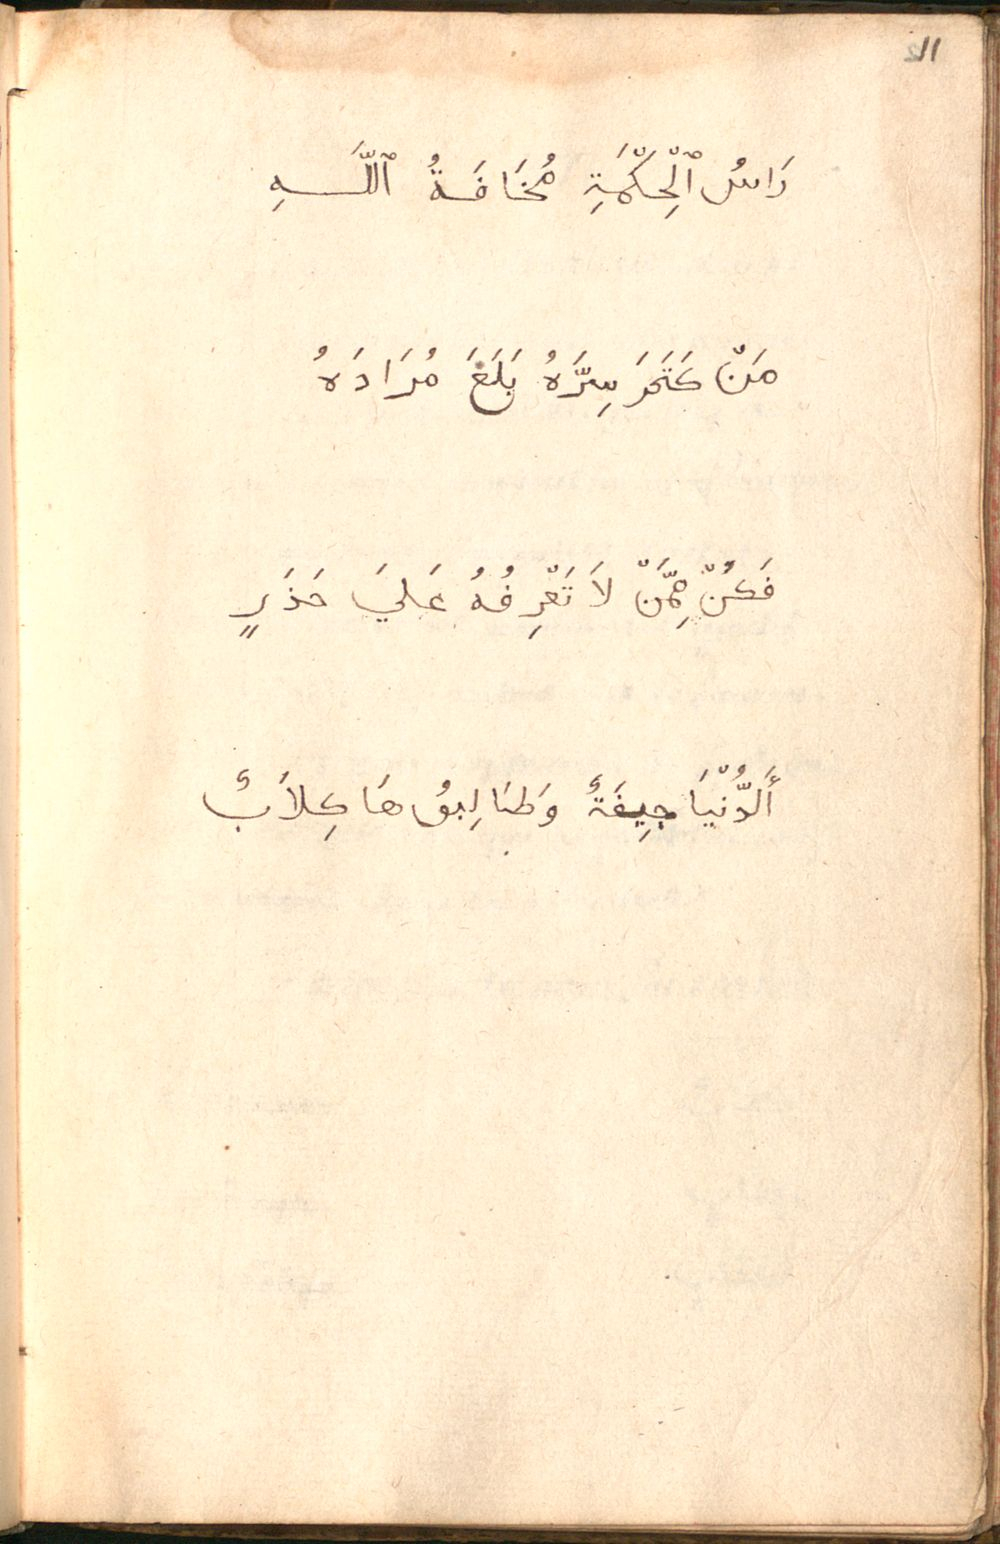 11
رَاسُ ٱلْحِكْمَةِ مُخَافَةُ ٱللَّهِ
مَنْ كَتَمَ سِرَّهُ بَلَغَ مُرَادَهُ
فَكُنْ مِمَّنْ لاَ تَعْرِفُهُ عَلَيَ حَذَرٍ
أَلدُّنْيَا جِيفَةٌ وَطَالِبُهَا كِلاَبٌ